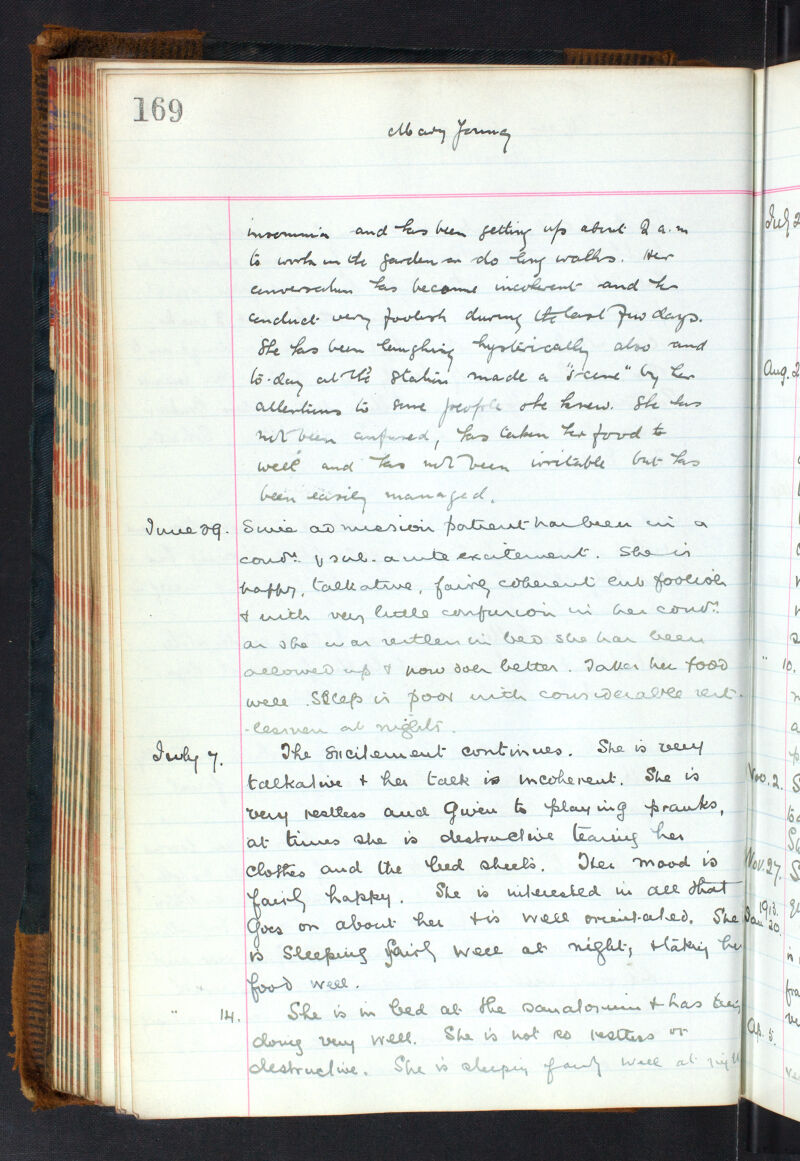 169
Mary Young
insomnia and has been getting up about 2 a.m
to work in the garden or do long walks. Her
conversation has become incoherent and her
conduct very foolish during the last few days.
She has been laughing hysterically also and
to-day at the station made a "scene" by her
attentions to some people she knew. She has
not been confused, has taken her food
well and has not been irritable but has
been easily managed.
June 29. Since admission patient has been in a
condn. of sub-acute excitement. She is
happy, talkative, fairly coherent but foolish
& with very little confusion in her condn.
as she was restless in bed she has been
allowed up & now does better. Takes her food
well. Sleep is poor with considerable rest-
-lessness at nights.
July 7. The excitement continues. She is very
talkative & her talk is incoherent. She is
very restless and given to playing pranks,
at times she is destructive tearing her
clothes and the bed sheets. Her mood is
fairly happy. She is interested in all that
goes on about her & is well orientated. She
is sleeping fairly well at night, & taking her
food well.
" 14. She is in bed at the sanatorium & has been
doing very well. She is not so restless or
destructive. She is sleeping fairly well at night
July 2
Aug. 2
" 10.
Nov. 2.
Nov. 27.
1913.
Jan 20.
Ap. 5.